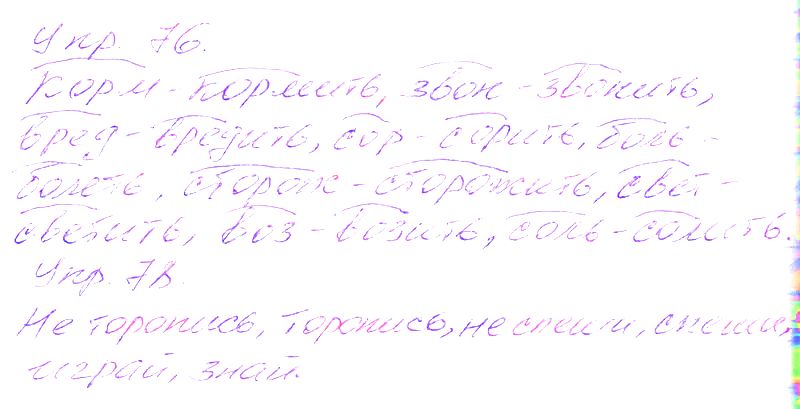 Упр. 76.
Корм - кормить, звон - звонить,
вред - вредить, сор - сорить, боль -
болеть, сторож - сторожить, свет -
светить, воз - возить, соль - солить.
Упр. 78.
Не торопись, торопись, не спеши, спеши,
играй, знай.